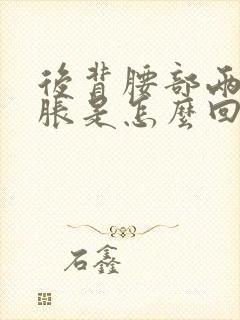 後背腰部兩
脹是怎麼回
石鑫